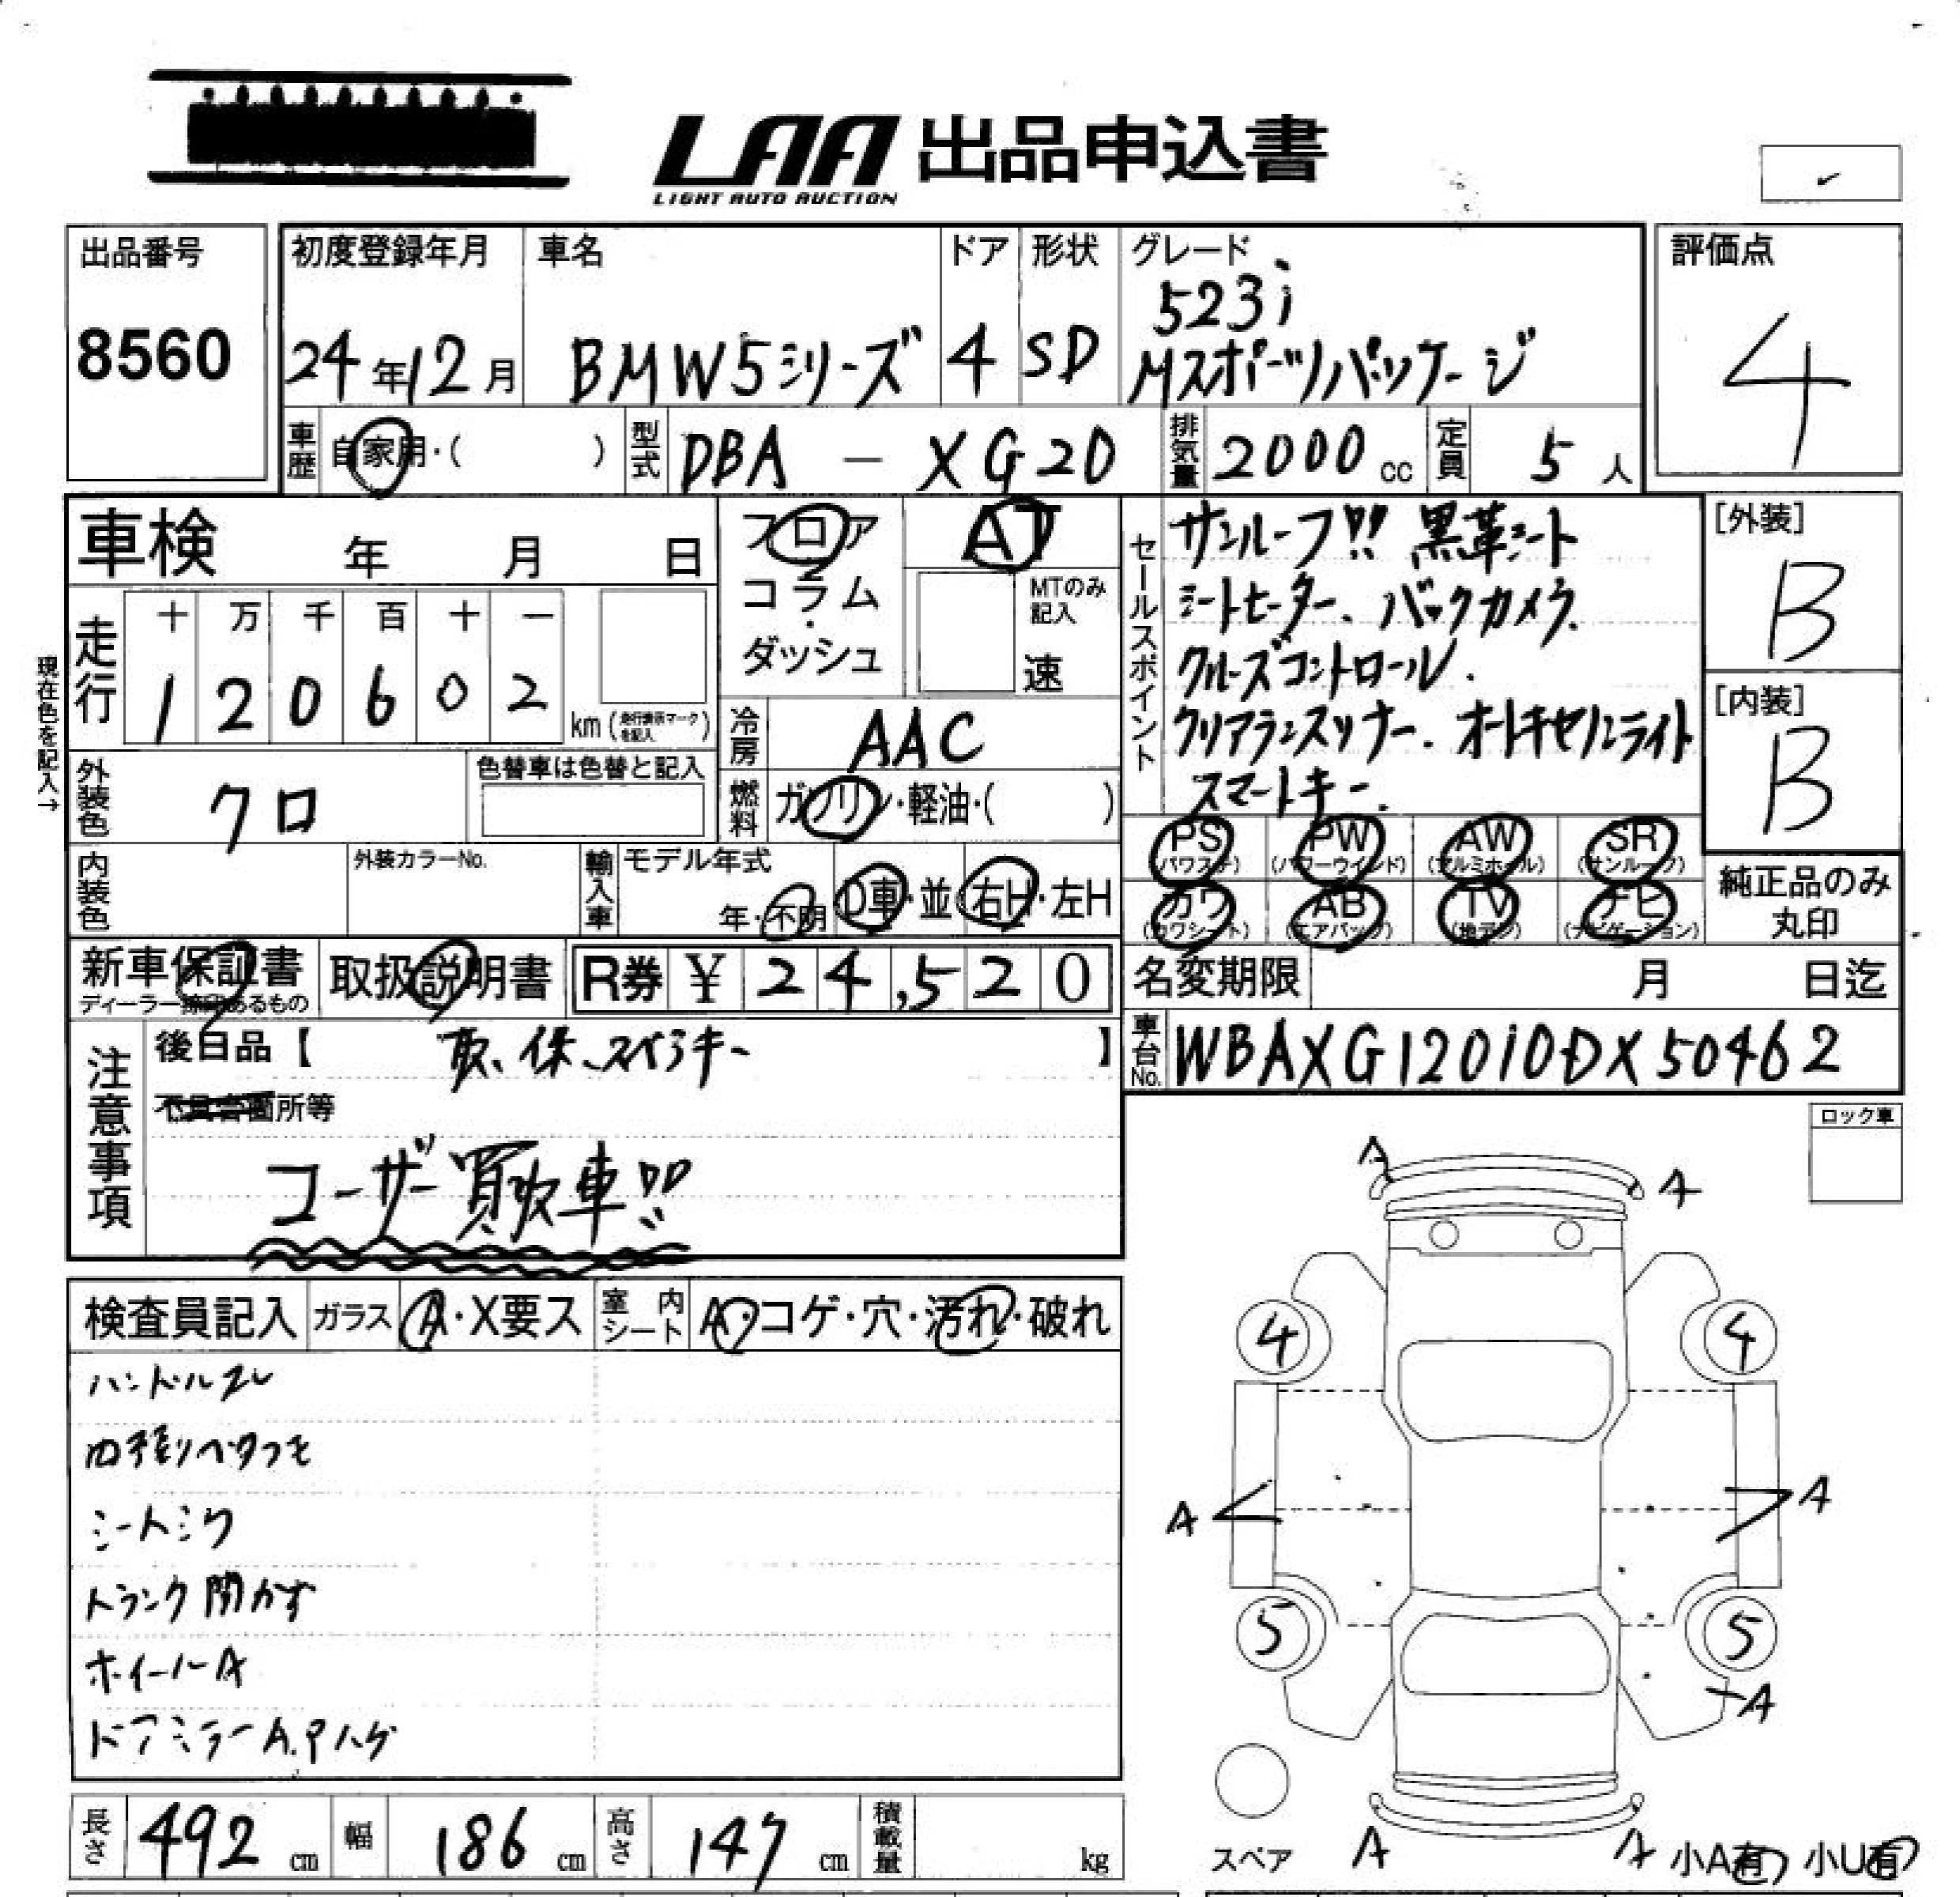 LAA 出品申込書
LIGHT AUTO AUCTION
出品番号 初度登録年月 車名 ドア 形状 グレード 評価点
8560 24年12月 BMW5シリーズ 4 SD 523i
Mスポーツパッケージ
4
車歴 自家用・( ) 型式 DBA - XG20 排気量 2000cc 定員 5人
車検 年 月 日
フロア
コラム
ダッシュ
AT
MTのみ記入
速
セールスポイント
サンルーフ!! 黒革シート
シートヒーター、バックカメラ、
クルーズコントロール.
クリアランスソナー. オートキセノンライト
スマートキー.
[外装]
B
[内装]
B
現在色を記入→
走行 十 万 千 百 十 一
1 2 0 6 0 2 km(走行表示マークを記入)
冷房 AAC
外装色 クロ 色替車は色替と記入
燃料 ガソリン・軽油・( )
PS (パワステ) PW (パワーウインド) AW (アルミホイール) SR (サンルーフ)
カワ (カワシート) AB (エアバッグ) TV (地デジ) ナビ (ナビゲーション)
純正品のみ
丸印
内装色 外装カラーNo. 輸入車 モデル年式 年・不明 D車・並 右H・左H
新車保証書 取扱説明書 R券 ¥ 24,520
ディーラー捺印あるもの
名変期限 月 日迄
車台No. WBAXG12010DX50462
注意事項
後日品【 取、保、スペアキー 】
箇所等
ユーザー買取車!!
ロック車
検査員記入 ガラス A・X要ス 室内シート A・コゲ・穴・汚れ・破れ
ハンドルスレ
内張りベタつき
シートシワ
トランク開かず
ホイールA
ドアミラーA.Pハゲ
A
A
4 4
A A
5 5
A
スペア A A 小A有 小U有
長さ 492cm 幅 186cm 高さ 147cm 積載量 kg